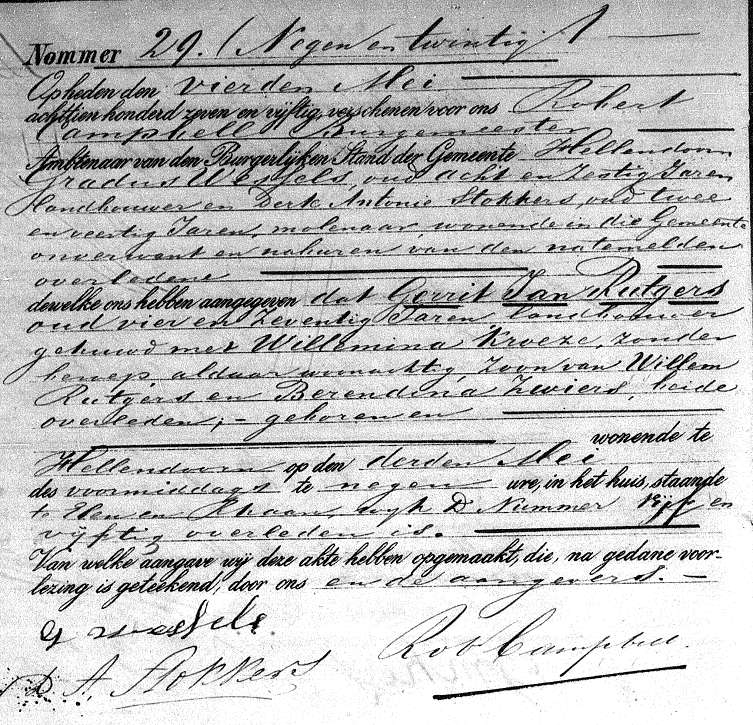 Nommer 29. (Negen en twintig)
Op heden den vierden Mei
achttien honderd zeven en vijftig, verschenen voor ons Robert
Campbell Burgemeester
Ambtenaar van den Burgerlijken Stand der Gemeente Hellendoorn
Gradus Wessels, oud acht en zestig Jaren
landbouwer en Derk Antonie Stokkers, oud twee
en veertig Jaren, molenaar, wonende in die Gemeente
onverwant en naburen van den natemelden
overledene
dewelke ons hebben aangegeven dat Gerrit Jan Rutgers
oud vier en zeventig Jaren landbouwer
gehuwd met Willemina Kroeze, zonder
beroep, aldaar woonachtig, zoon van Willem
Rutgers en Berendina Zwiers, beide
overleden; – geboren en
wonende te
Hellendoorn op den derden Mei
des voormiddags te negen ure, in het huis, staande
te Elen en Rhaan wijk D Nummer vijf en
vijftig overleden is.
Van welke aangave wij deze akte hebben opgemaakt, die, na gedane voor-
lezing is geteekend, door ons en de aangevers. –
G Wessels.
Rob Campbell.
D. A. Stokkers